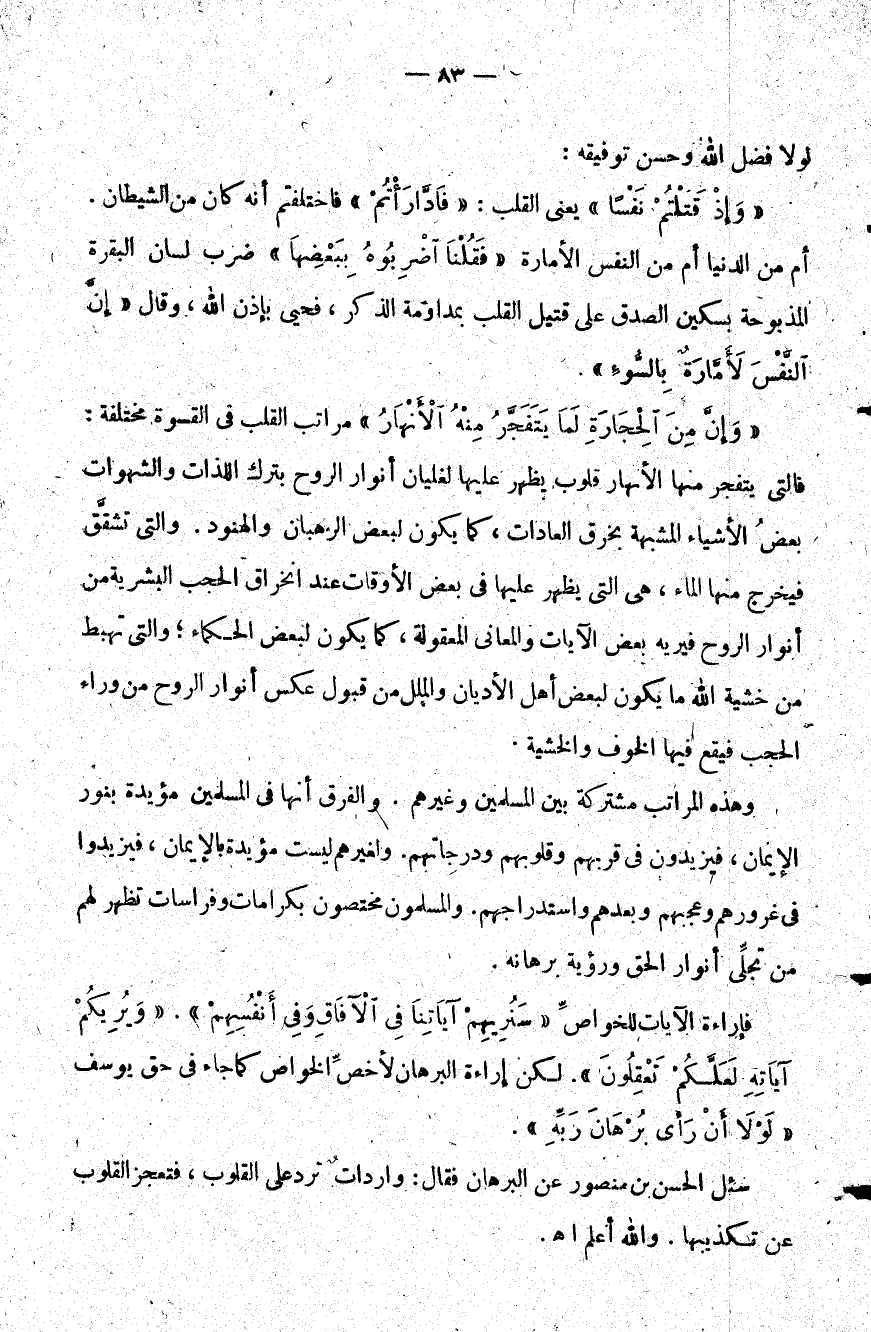 — ٨٣ —
لولا فضل الله وحسن توفيقه :
« وَإِذْ قَتَلْتُمْ نَفْسًا » يعنى القلب : « فَادَّارَأْتُمْ » فاختلفتم أنه كان من الشيطان .
أم من الدنيا أم من النفس الأمارة « فَقُلْنَا ٱضْرِبُوهُ بِبَعْضِهَا » ضرب لسان البقرة
المذبوحة بسكين الصدق على قتيل القلب بمداومة الذكر ، فحيى بإذن الله ، وقال « إِنَّ
ٱلنَّفْسَ لَأَمَّارَةٌ بِالسُّوءِ » .
« وَإِنَّ مِنَ ٱلْحِجَارَةِ لَمَا يَتَفَجَّرُ مِنْهُ ٱلْأَنْهَارُ » مراتب القلب فى القسوة مختلفة :
فالتى يتفجر منها الأنهار قلوب يظهر عليها لغليان أنوار الروح بترك اللذات والشهوات
بعضُ الأشياء المشبهة بخرق العادات ، كما يكون لبعض الرهبان والهنود . والتى تشقَّق
فيخرج منها الماء ، هى التى يظهر عليها فى بعض الأوقات عند انخراق الحجب البشرية من
أنوار الروح فيريه بعض الآيات والمعانى المعقولة ، كما يكون لبعض الحكماء ؛ والتى تهبط
من خشية الله ما يكون لبعض أهل الأديان والملل من قبول عكس أنوار الروح من وراء
الحجب فيقع فيها الخوف والخشية .
وهذه المراتب مشتركة بين المسلمين وغيرهم . والفرق أنها فى المسلمين مؤيدة بنور
الإيمان ، فيزيدون فى قربهم وقلوبهم ودرجاتهم. ولغيرهم ليست مؤيدة بالإيمان ، فيزيدوا
فى غرورهم وعجبهم وبعدهم واستدراجهم. والمسلمون مختصون بكرامات وفراسات تظهر لهم
من تجلِّى أنوار الحق ورؤية برهانه .
فإراءة الآيات للخواصِّ « سَنُرِيهِمْ آيَاتِنَا فِى ٱلْآفَاقِ وَفِى أَنْفُسِهِمْ » . « وَيُرِيكُمْ
آيَاتِهِ لَعَلَّكُمْ تَعْقِلُونَ » . لكن إراءة البرهان لأخصِّ الخواص كما جاء فى حق يوسف
« لَوْلَا أَنْ رَأَى بُرْهَانَ رَبِّهِ » .
سئل الحسن بن منصور عن البرهان فقال : وارداتٌ ترد على القلوب ، فتعجز القلوب
عن تكذيبها . والله أعلم اه .